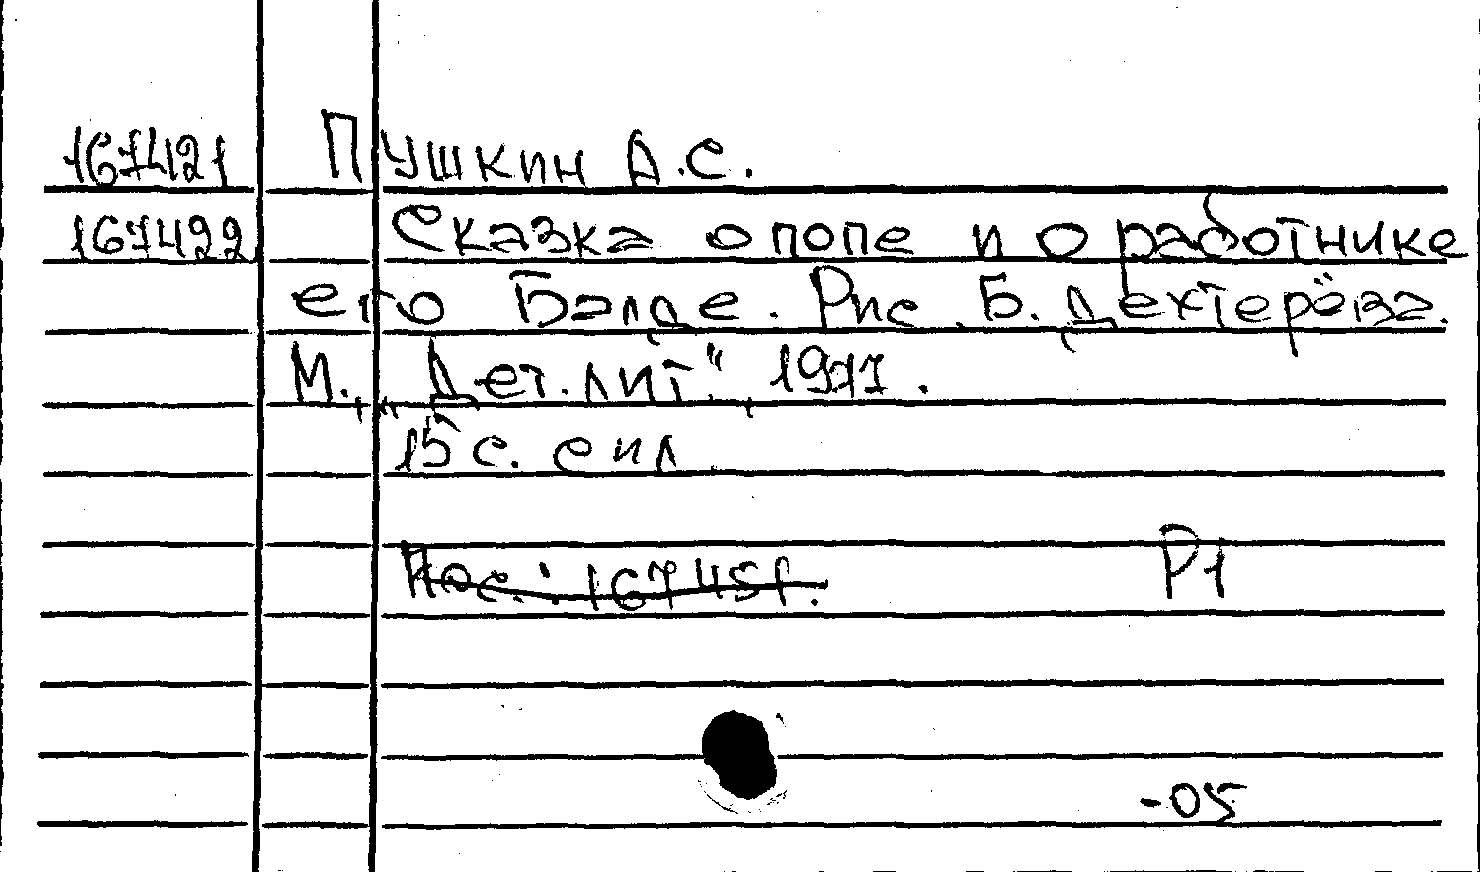 167421 Пушкин А.С.
167422 Сказка о попе и о работнике
его Балде. Рис. Б. Дехтерёва.
М., „Дет. лит", 1977.
15 с. с ил
Пос.: 167451.
Р1
-05